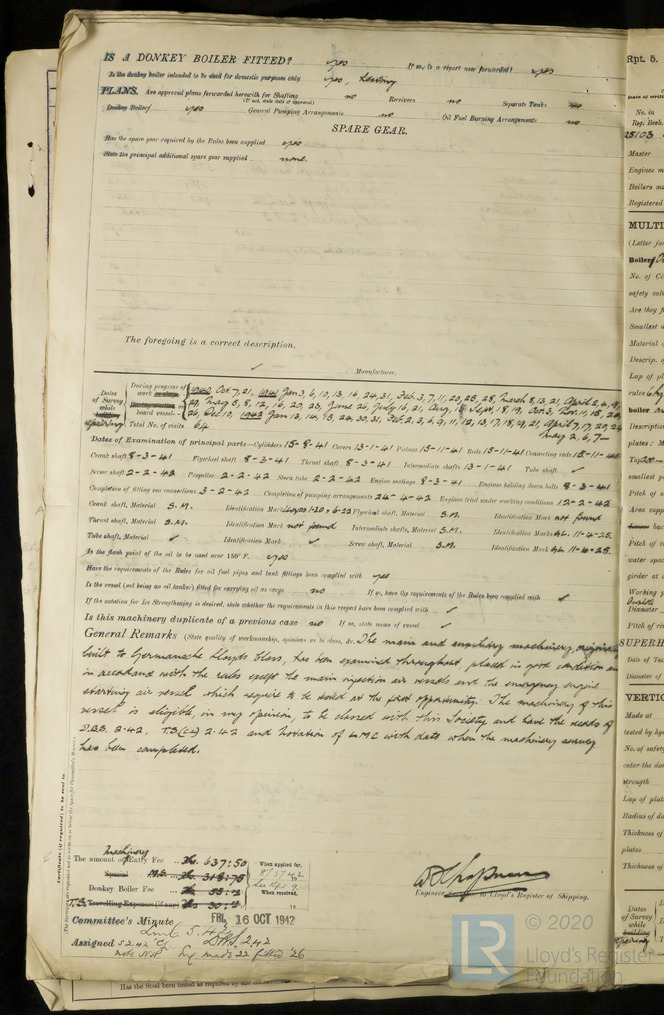 IS A DONKEY BOILER FITTED? yes If so, is a report now forwarded? yes
Is the donkey boiler intended to be used for domestic purposes only yes, heating
PLANS. Are approved plans forwarded herewith for Shafting no Receivers no Separate Tanks no
(If not, state date of approval)
Donkey Boiler yes General Pumping Arrangements no Oil Fuel Burning Arrangements no
SPARE GEAR.
Has the spare gear required by the Rules been supplied yes
State the principal additional spare gear supplied none.
The foregoing is a correct description,
Manufacturer.
Dates of Survey while building
During progress of work in shops 1940 Oct. 7, 21, 1941 Jan 3, 6, 10, 13, 16, 24, 31, Feb. 3, 7, 11, 20, 25, 28, March 8, 13, 21, April 2, 4,
During erection on board vessel May 5, 8, 12, 16, 20, 23, June 26, July 16, 21, Aug. Sept. 18, 19, Oct. 3, Nov. 11, 15, 20
26, Dec 10, 1942 Jan 13, 14, 15, 24, 30, 31, Feb. 2, 3, 6, 9, 11, 12, 13, 17, 18, 19, 21, April 7, 17, 20, 24
Total No. of visits 64 May 2, 6, 7
Dates of Examination of principal parts—Cylinders 15-8-41 Covers 13-1-41 Pistons 15-11-41 Rods 15-11-41 Connecting rods 15-11-41
Crank shaft 8-3-41 Flywheel shaft 8-3-41 Thrust shaft 8-3-41 Intermediate shafts 13-1-41 Tube shaft ✓
Screw shaft 2-2-42 Propeller 2-2-42 Stern tube 2-2-42 Engine seatings 8-3-41 Engines holding down bolts 8-3-41
Completion of fitting sea connections 3-2-42 Completion of pumping arrangements 24-4-42 Engines tried under working conditions 12-2-42
Crank shaft, Material S.M. Identification Mark 1-20+6-25 Flywheel shaft, Material S.M. Identification Mark not found
Thrust shaft, Material S.M. Identification Mark not found Intermediate shafts, Material S.M. Identification Marks GL. 11-4-25.
Tube shaft, Material ✓ Identification Mark ✓ Screw shaft, Material S.M. Identification Mark GL 11-4-25.
Is the flash point of the oil to be used over 150° F. yes
Have the requirements of the Rules for oil fuel pipes and tank fittings been complied with yes
Is the vessel (not being an oil tanker) fitted for carrying oil as cargo no If so, have the requirements of the Rules been complied with ✓
If the notation for Ice Strengthening is desired, state whether the requirements in this respect have been complied with ✓
Is this machinery duplicate of a previous case no If so, state name of vessel ✓
General Remarks (State quality of workmanship, opinions as to class, &c. The main and auxiliary machinery, original
built to Germanische Lloyds Class, has been examined throughout, placed in good condition
in accordance with the rules except the main injection air vessels and the emergency engine
starting air vessel which require to be tested at the first opportunity. The machinery of this
vessel is eligible in my opinion, to be classed with this Society and have the records of
D.B.S. 2.42, T.S(CL) 2.42 and notation of LMC with date when the machinery survey
has been completed.
machinery
The amount of Entry Fee ... Kr. 637:50
Special ... 318:75
Donkey Boiler Fee ...
T.S. Travelling Expenses (if any)
When applied for,
When received,
Engineer Surveyor to Lloyd's Register of Shipping.
Committee's Minute FRI. 16 OCT 1942
Assigned
Has the Steel been tested as required by the
Rpt. 5.
No. in
Reg. Book.
Master
Engines
Boilers
Registered
MULTI
(Letter for
Boiler
No. of
safety val
Are they
Smallest
Material
Descrip. of
Lap of
Description
plates :
smallest
Pitch of
Area supp
Pitch of
water spac
girder at
Working
Diameter
Pitch of
SUPERH
Date of
Diameter of
VERTIC
Made at
tested by
No. of safety
enter the
strength
Lap of plat
Radius of
Thickness of
plates
Thickness of
Dates of Survey while building
© 2020
LR
Lloyd's Register
Foundation